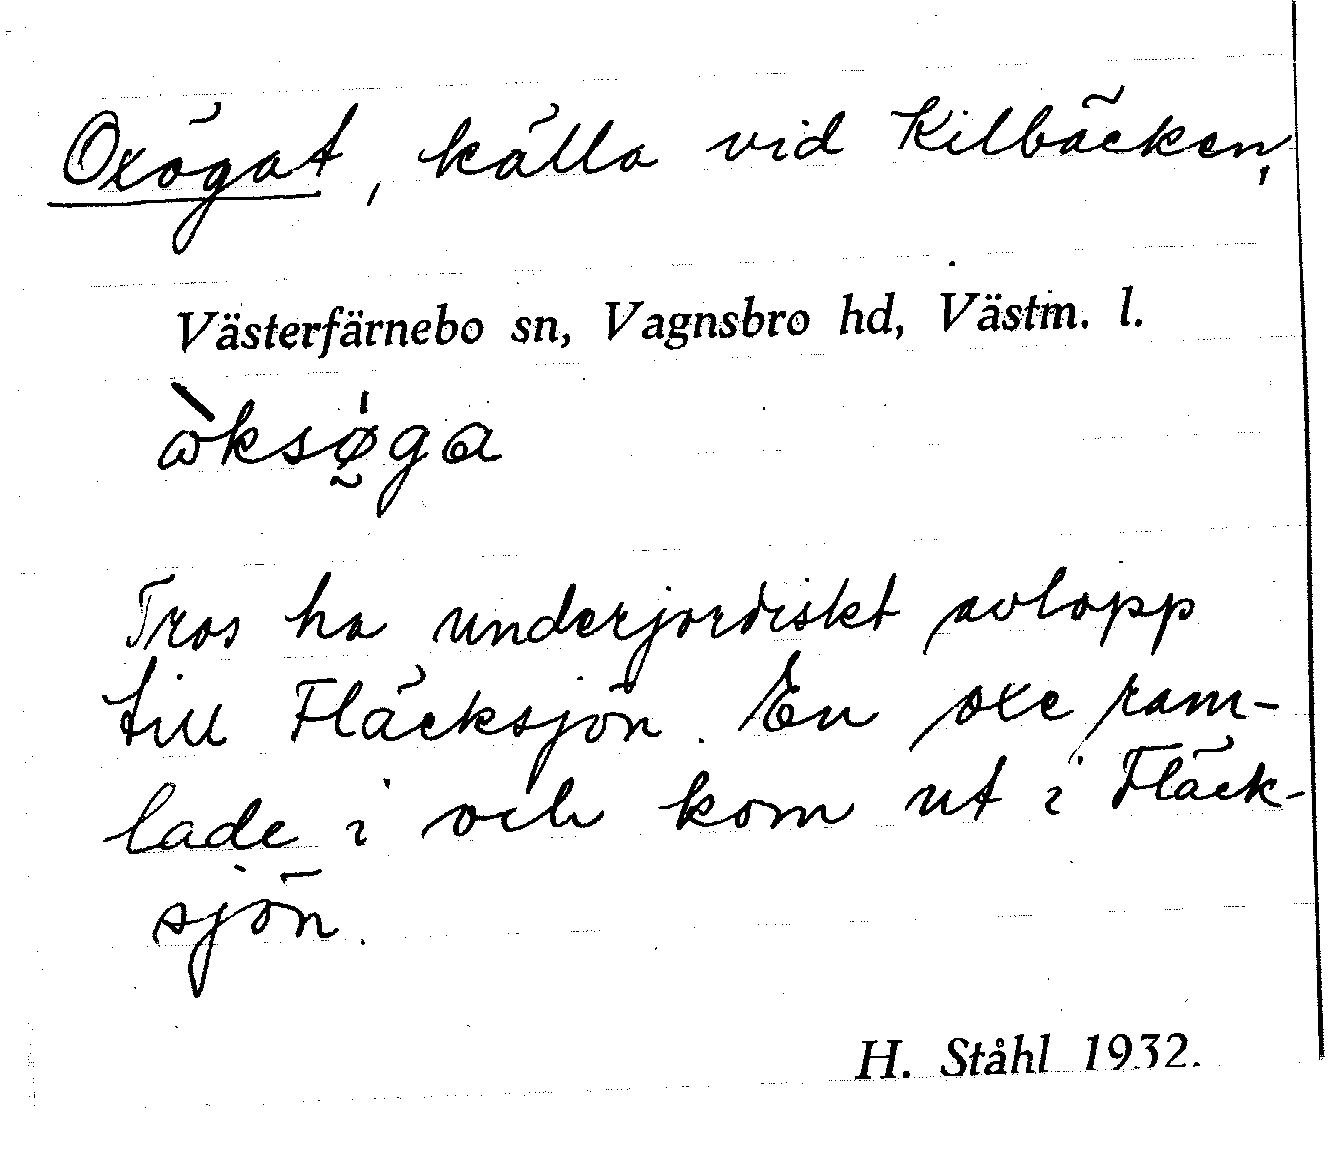 Oxögat, källa vid Kilbäcken,
Västerfärnebo sn, Vagnsbro hd, Västm. l.
ὼksø̰̍ga
Tros ha underjordiskt avlopp
till Fläcksjön. En oxe ram-
lade i och kom ut i Fläck-
sjön.
H. Ståhl 1932.